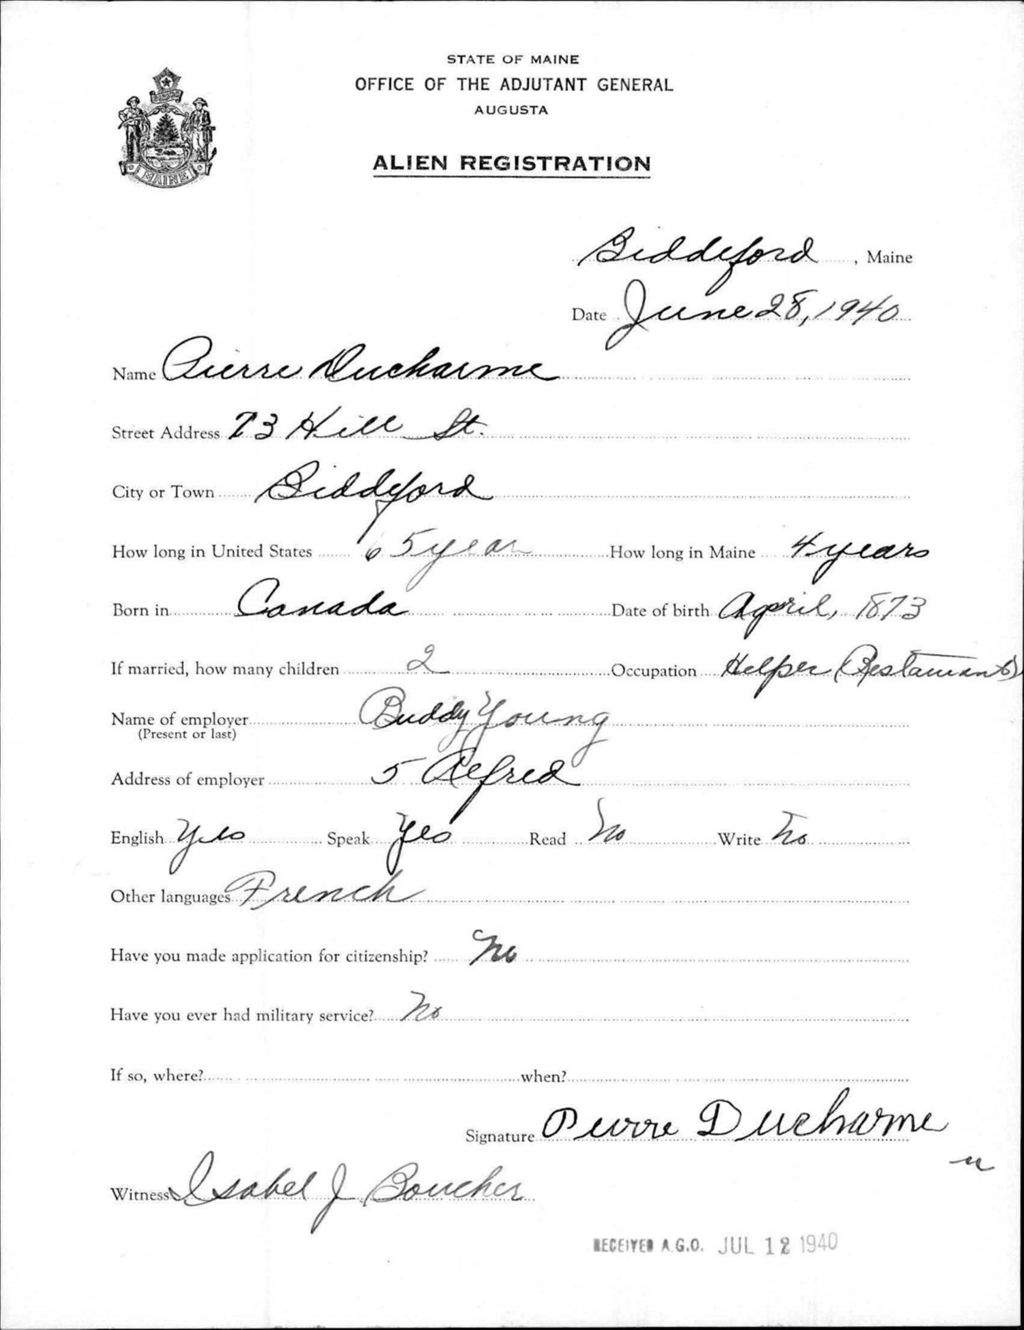 STATE OF MAINE
OFFICE OF THE ADJUTANT GENERAL
AUGUSTA
ALIEN REGISTRATION
MAINE
Biddeford, Maine
Date June 28, 1940
Name Pierre Ducharme
Street Address 73 Hill St.
City or Town Biddeford
How long in United States 65 year How long in Maine 4 years
Born in Canada Date of birth April, 1873
If married, how many children 2 Occupation Helper (Restaurant)
Name of employer Buddy Young
(Present or last)
Address of employer 5 Alfred
English Yes Speak Yes Read No Write No
Other languages French
Have you made application for citizenship? No
Have you ever had military service? No
If so, where? when?
Signature Pierre Ducharme
Witness Isabel J Boucher
RECEIVED A.G.O. JUL 12 1940